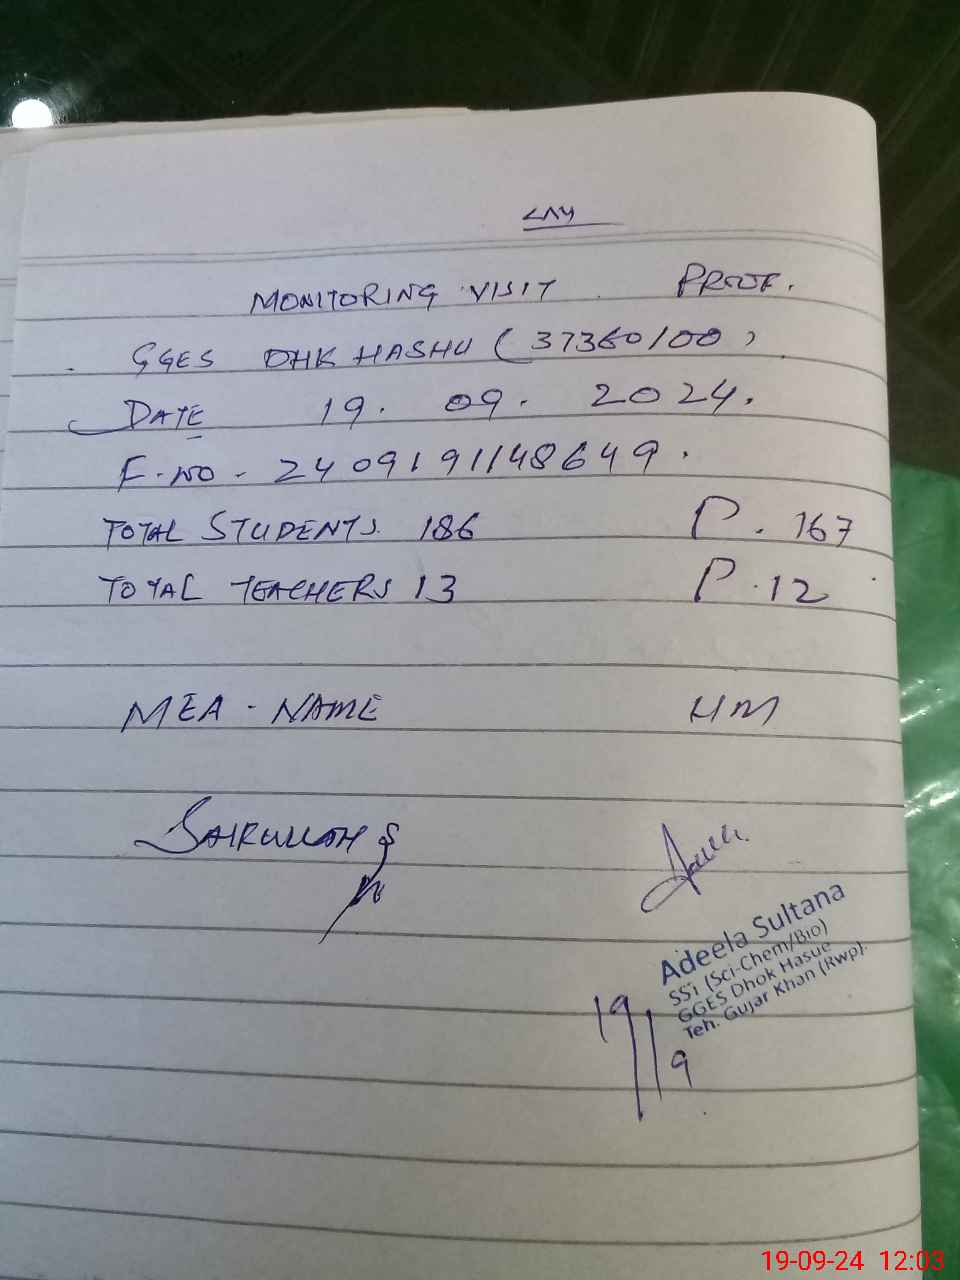 MONITORING VISIT PROOF.
GGES DHK HASHU (37360100)
DATE 19. 09. 2024.
F.NO - 2409191148649.
TOTAL STUDENTS. 186 P. 167
TOTAL TEACHERS 13 P. 12
MEA - NAME HM
Adeela Sultana
SSI (Sci-Chem/Bio)
GGES Dhok Hasue
Teh. Gujar Khan (Rwp).
19/9
19-09-24 12:03